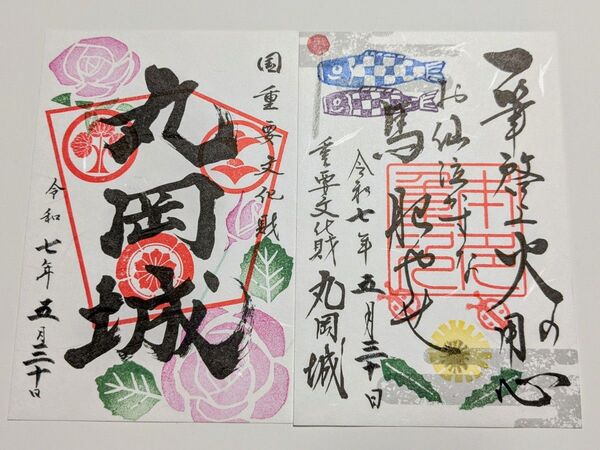 国重要文化財
丸岡城
令和七年五月三十日
一筆啓上火の用心
お仙泣かすな
馬肥やせ
令和七年五月三十日
重要文化財丸岡城